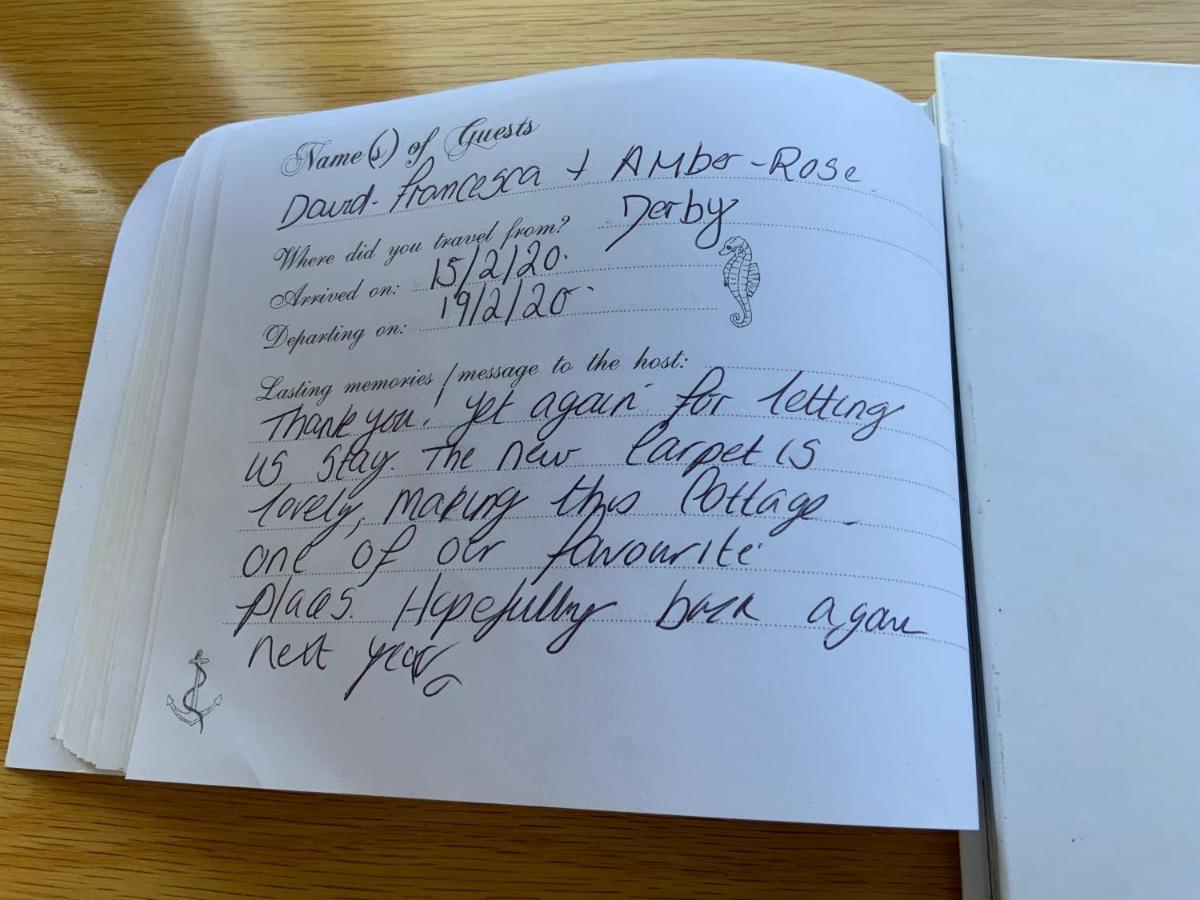 Name(s) of Guests
David. Francesca + AMber-Rose
Where did you travel from? Derby
Arrived on: 15/2/20.
Departing on: 19/2/20.
Lasting memories / message to the host:
Thank you! yet again for letting
us stay. The new Carpet is
lovely, making this Cottage
one of our favourite
places. Hopefully back again
next year